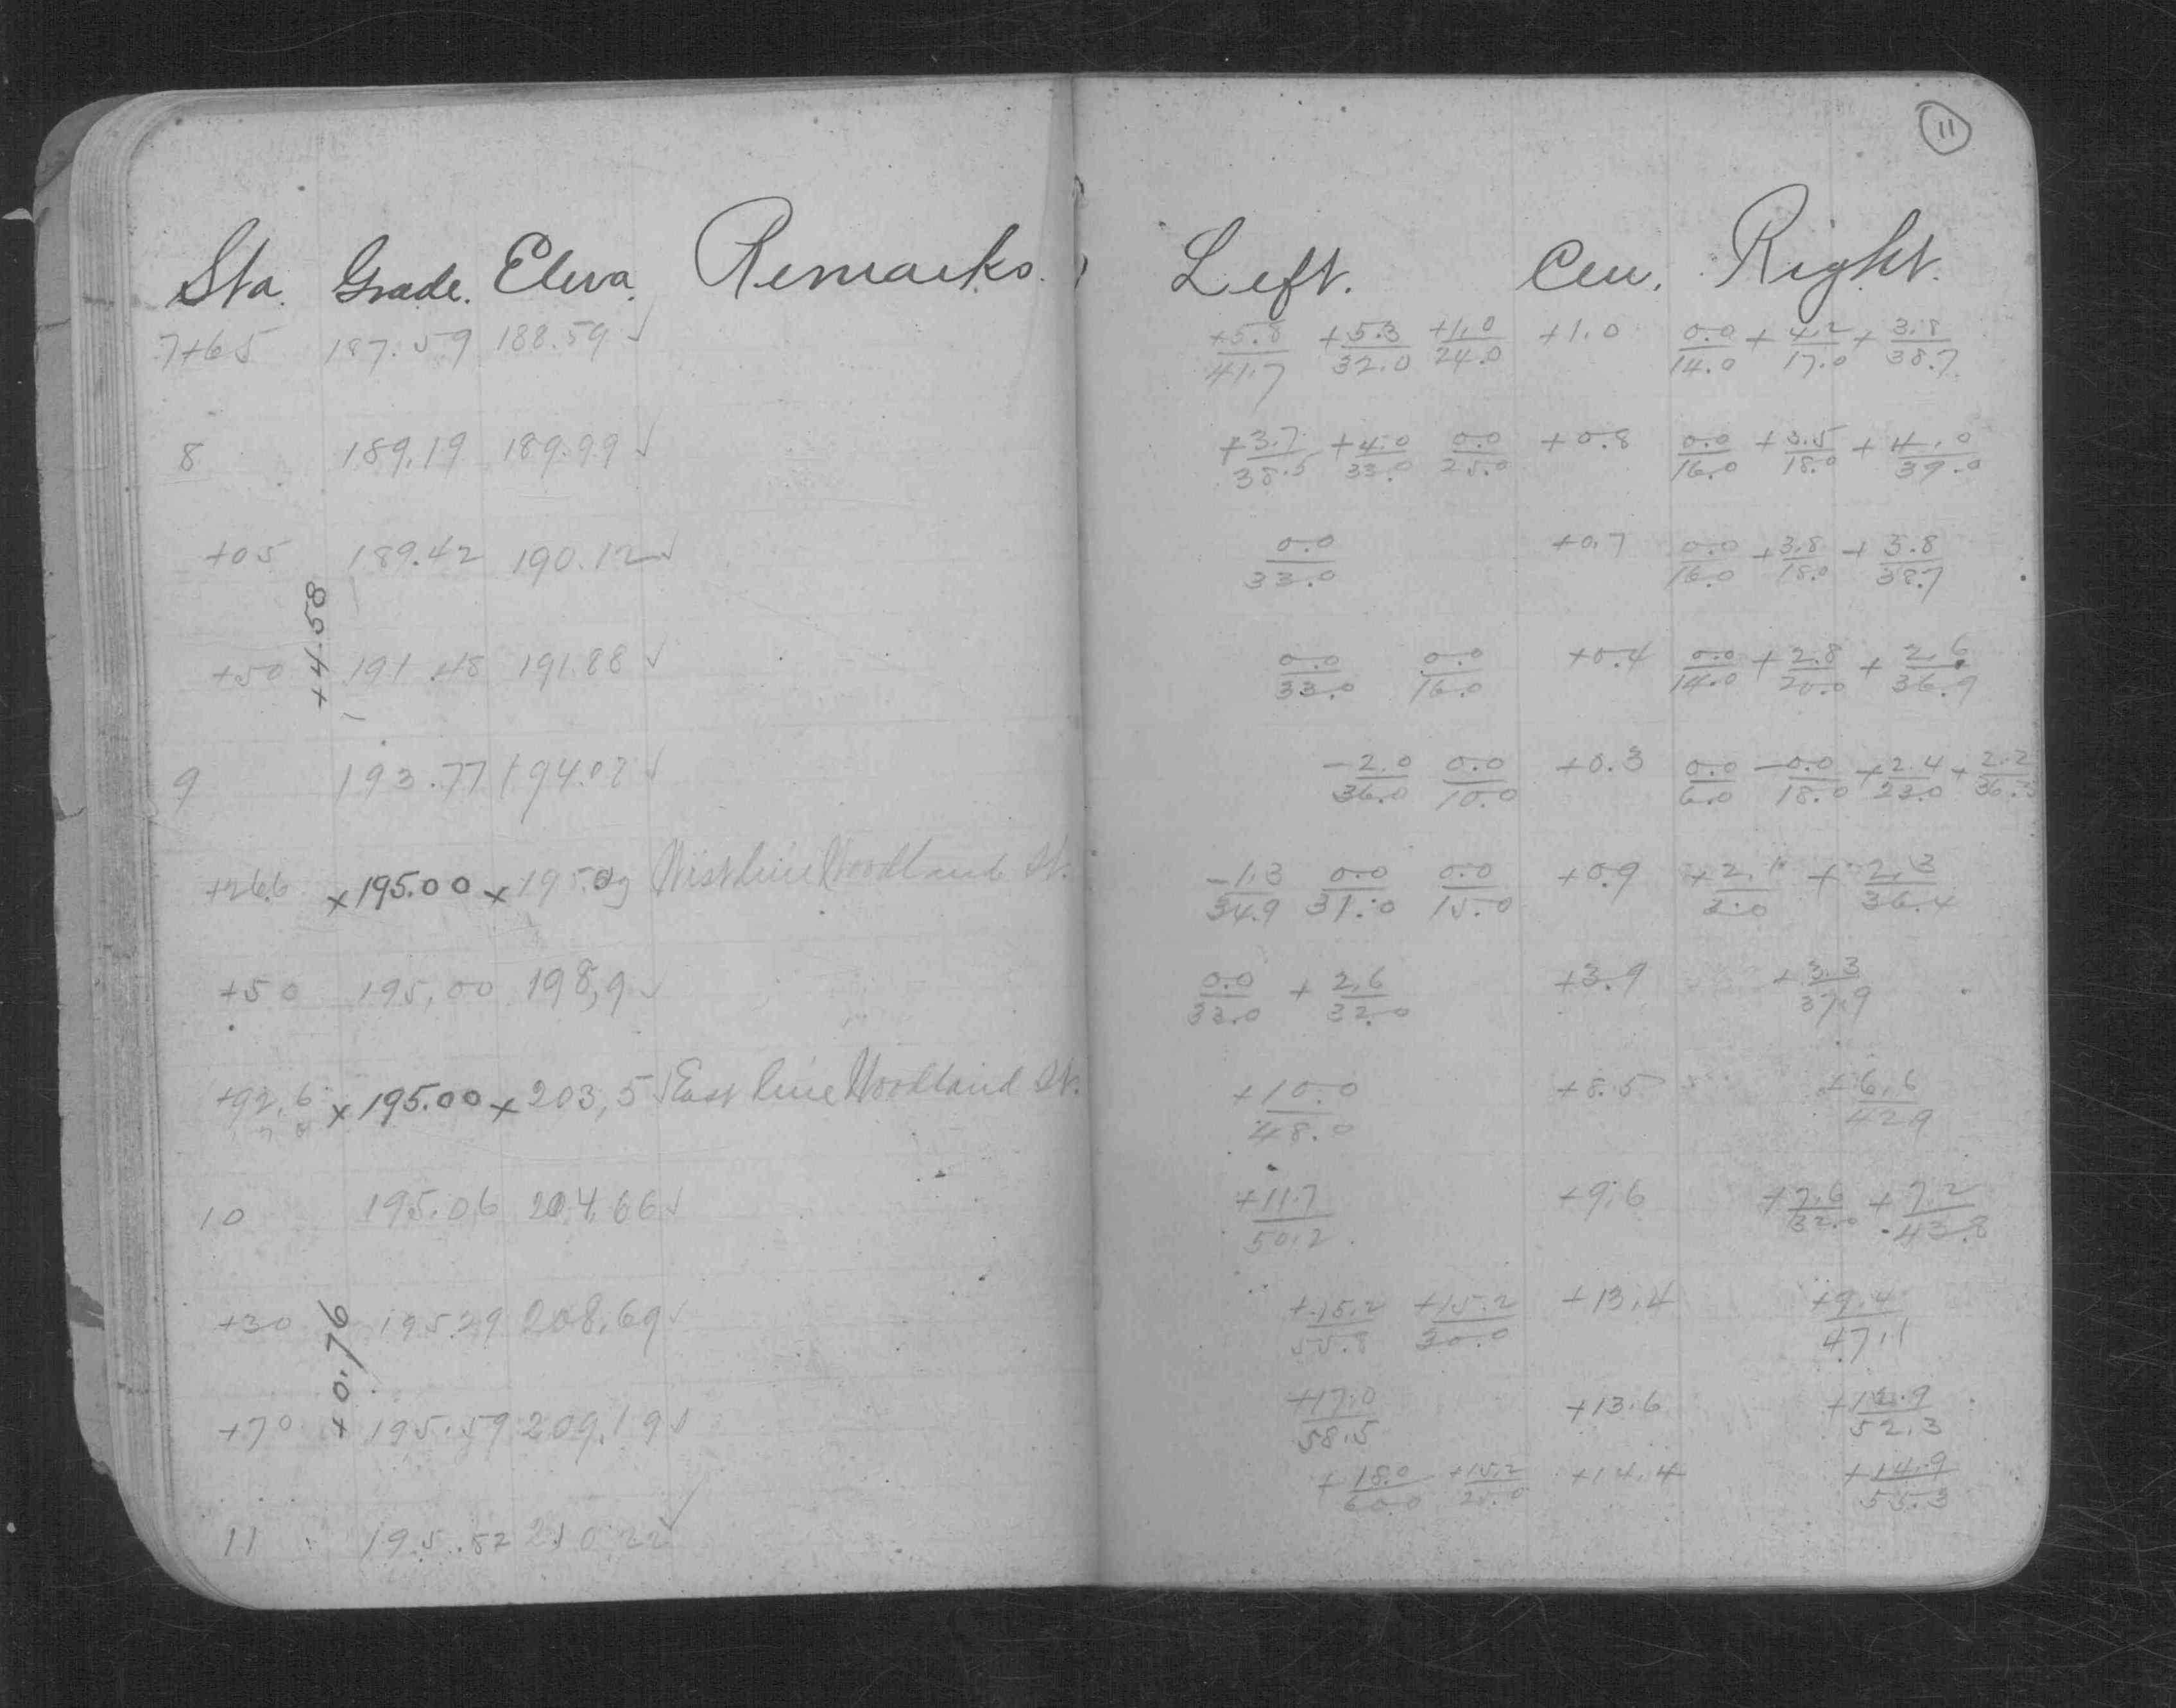 11
Sta. Grade. Eleva. Remarks. Left. Cen. Right.
7+65 187.59 188.59 ✓ +5.8/41.7 +5.3/32.0 +1.0/24.0 +1.0 0.0/14.0 +4.2/17.0 +3.8/38.7
8 189.19 189.99 ✓ +3.7/38.5 +4.0/33.0 0.0/25.0 +0.8 0.0/16.0 +3.5/18.0 +4.0/39.0
+05 189.42 190.12 ✓ 0.0/33.0 +0.7 0.0/16.0 +3.8/18.0 +3.8/38.7
+4.58
+50 191.48 191.88 ✓ 0.0/33.0 0.0/16.0 +0.4 0.0/14.0 +2.8/20.0 +2.6/36.9
9 193.77 194.07 ✓ -2.0/36.0 0.0/10.0 +0.3 0.0/6.0 -0.0/18.0 +2.4/23.0 +2.2/36.3
+26.6 x 195.00 x West line Woodland St. -1.3/34.9 0.0/31.0 0.0/15.0 +0.9 +2.3/36.4
+50 195.00 198.9 ✓ 0.0/33.0 +2.6/32.0 +3.9 +3.3/37.9
+92.6 x 195.00 x 203.5 ✓ East line Woodland St. +10.0/48.0 +8.5 +6.6/42.9
10 195.06 204.66 ✓ +11.7/50.2 +9.6 +7.6/32.0 +7.2/43.8
+30 195.29 208.69 ✓ +15.2/55.8 +15.2/30.0 +13.4 +9.4/47.1
+0.76
+70 195.59 209.19 ✓ +17.0/58.5 +13.6 52.3
11 195.82 210.22 ✓ +18.0/60.0 +15.2/25.0 +14.4 +14.9/55.3